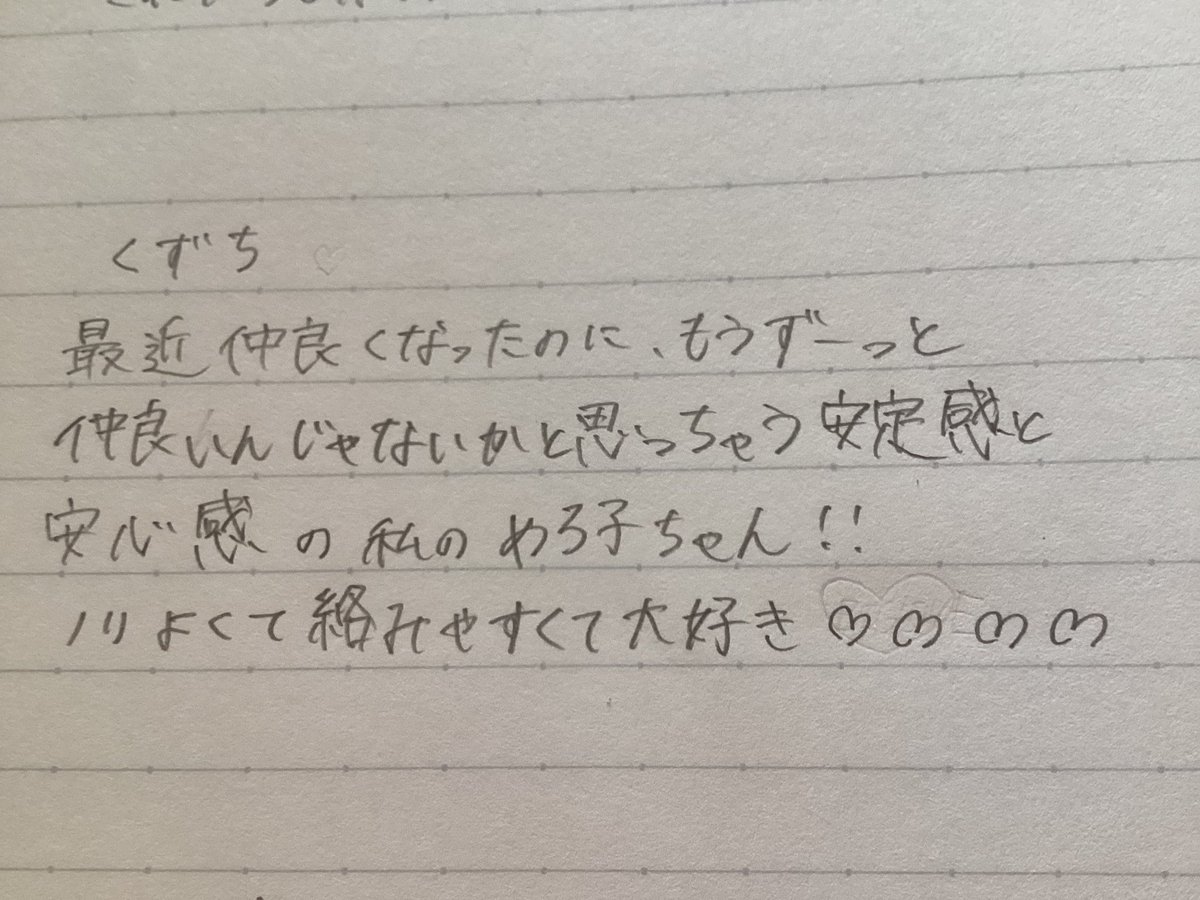 くずち ♡
最近仲良くなったのに、もうずーっと
仲良いんじゃないかと思っちゃう安定感と
安心感の私のめろ子ちゃん!!
ノリよくて絡みやすくて大好き♡♡♡♡